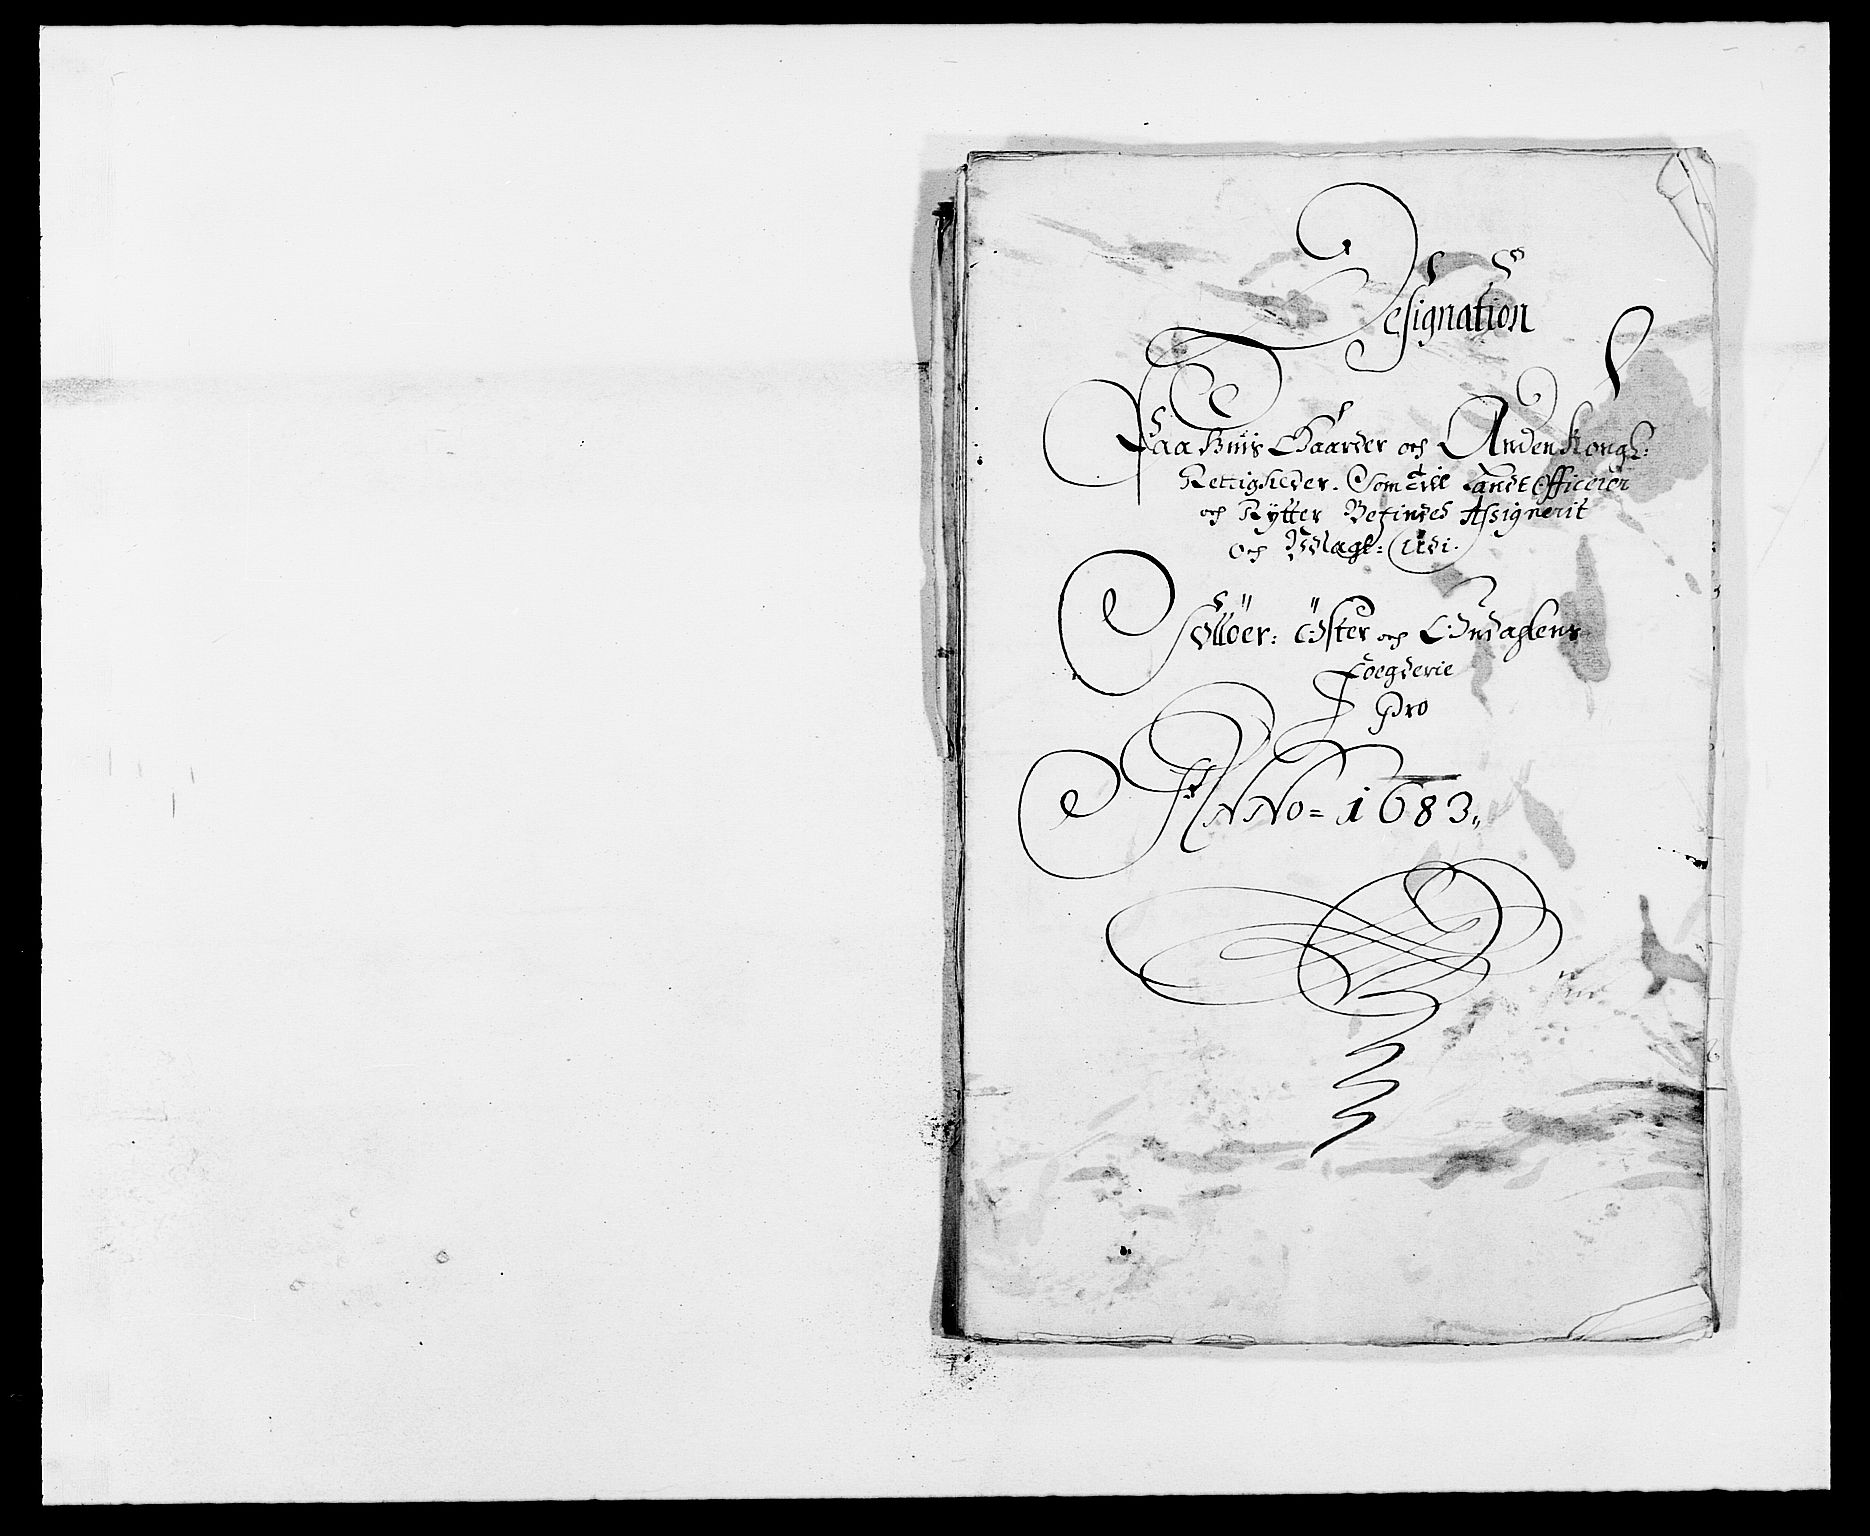 Designation
Paa Huis Gaarder och Anden Kongl:
Rettigheder. Som till Landt Officerer
och Rytter Befindes Assignerit
Och Udlagt: Udi.
Solloer: Öster och Ondahlens
Foegderie
Pro
ANNO = 1683,,